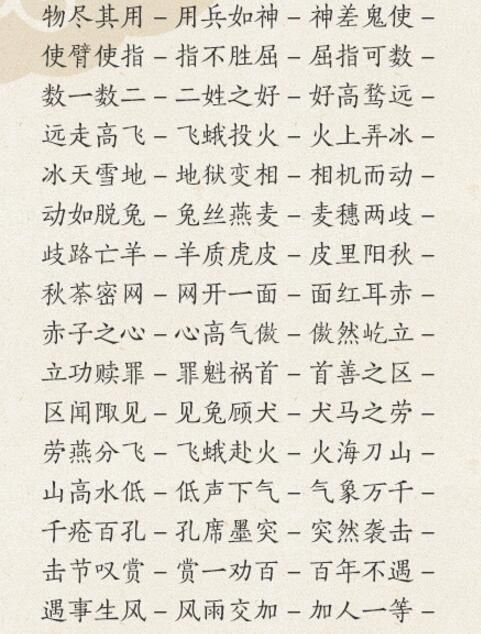 物尽其用－用兵如神－神差鬼使－
使臂使指－指不胜屈－屈指可数－
数一数二－二姓之好－好高骛远－
远走高飞－飞蛾投火－火上弄冰－
冰天雪地－地狱变相－相机而动－
动如脱兔－兔丝燕麦－麦穗两歧－
歧路亡羊－羊质虎皮－皮里阳秋－
秋荼密网－网开一面－面红耳赤－
赤子之心－心高气傲－傲然屹立－
立功赎罪－罪魁祸首－首善之区－
区闻陬见－见兔顾犬－犬马之劳－
劳燕分飞－飞蛾赴火－火海刀山－
山高水低－低声下气－气象万千－
千疮百孔－孔席墨突－突然袭击－
击节叹赏－赏一劝百－百年不遇－
遇事生风－风雨交加－加人一等－